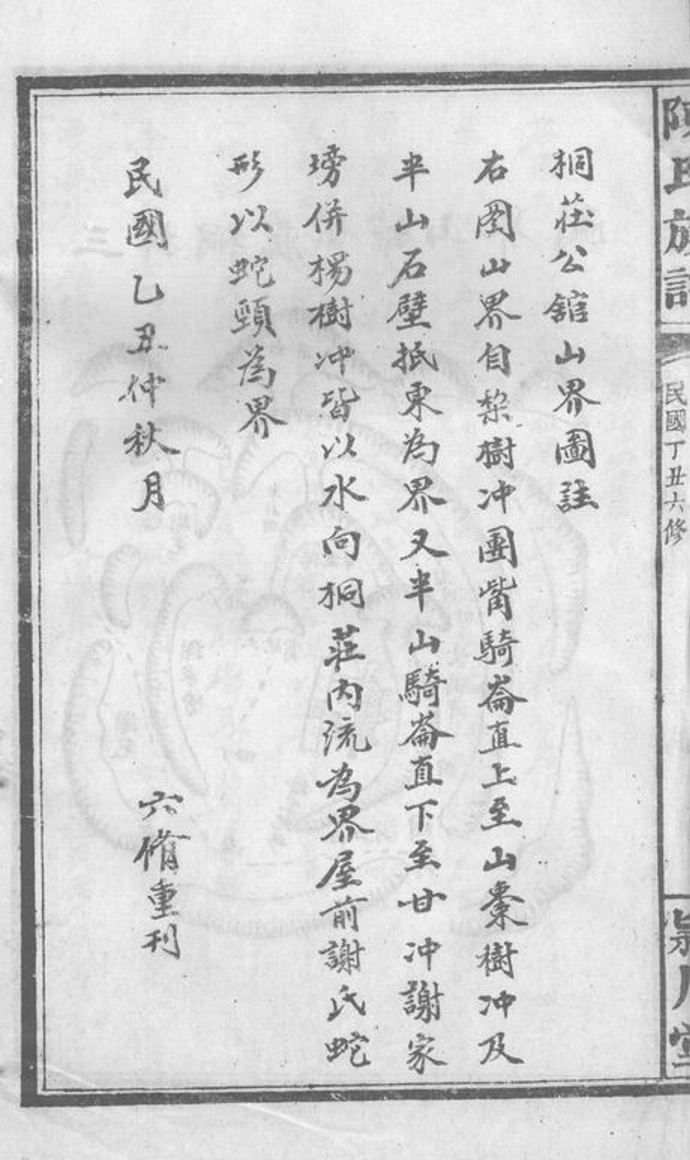 陳氏族譜
民國丁丑六修
桐莊公舘山界圖註
右圖山界自棃樹冲團嘴騎崙直上至山棗樹冲及
半山石壁抵東為界又半山騎崙直下至甘冲謝家
塝併楊樹冲皆以水向桐莊內流為界屋前謝氏蛇
形以蛇頸為界
民國乙丑仲秋月
六脩重刊